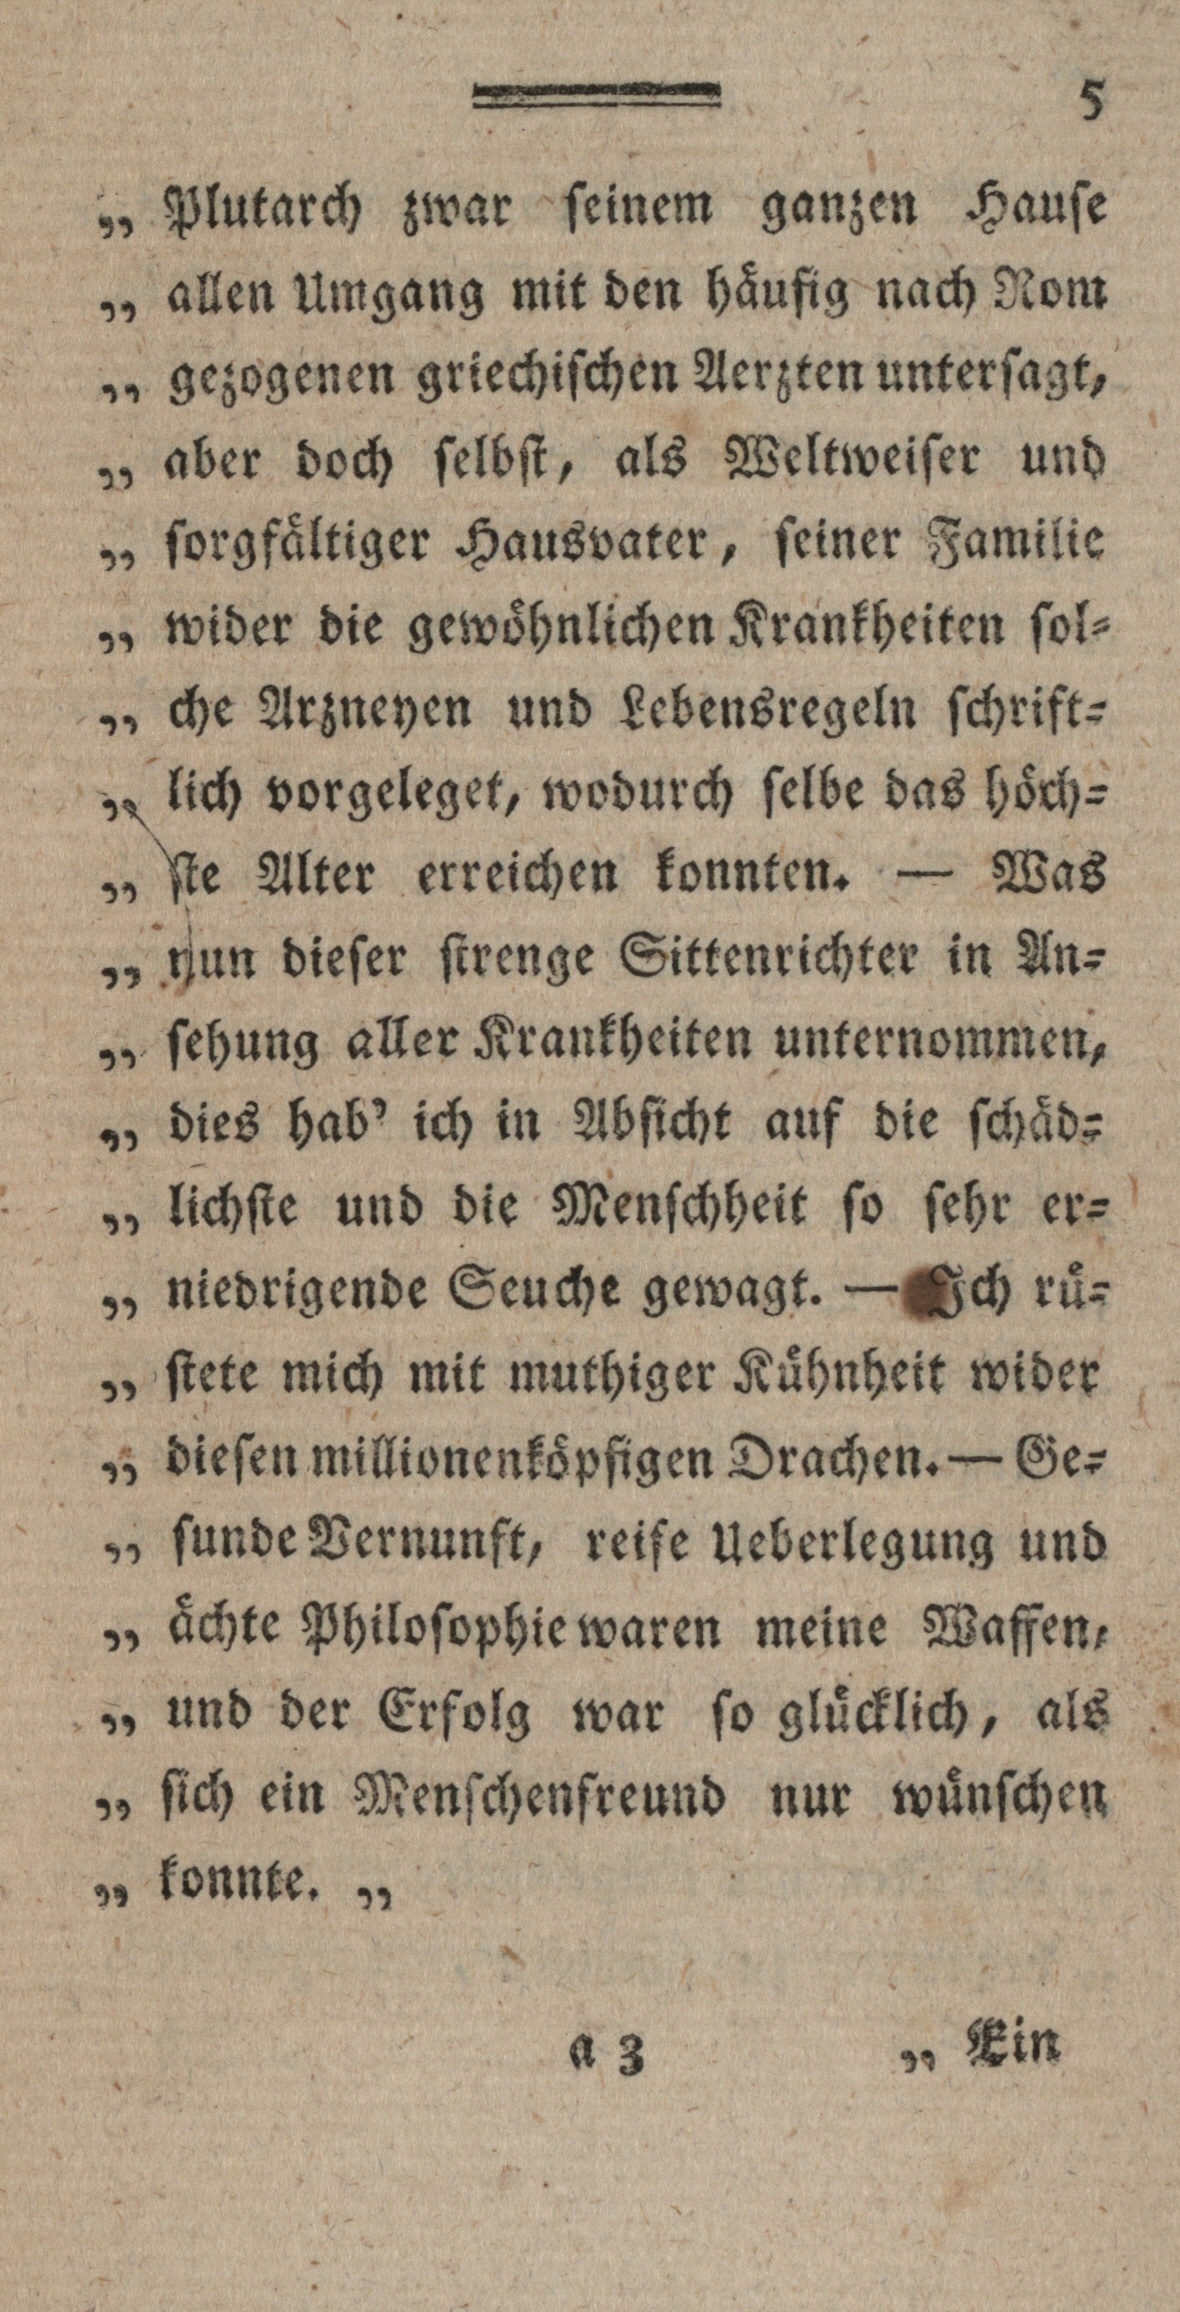 5
„ Plutarch zwar seinem ganzen Hause
„ allen Umgang mit den häufig nach Rom
„ gezogenen griechischen Aerzten untersagt,
„ aber doch selbst, als Weltweiser und
„ sorgfältiger Hausvater, seiner Familie
„ wider die gewöhnlichen Krankheiten sol-
„ che Arzneyen und Lebensregeln schrift-
„ lich vorgeleget, wodurch selbe das höch-
„ ste Alter erreichen konnten. — Was
„ nun dieser strenge Sittenrichter in An-
„ sehung aller Krankheiten unternommen,
„ dies hab' ich in Absicht auf die schäd-
„ lichste und die Menschheit so sehr er-
„ niedrigende Seuche gewagt. — Ich rü-
„ stete mich mit muthiger Kühnheit wider
„ diesen millionenköpfigen Drachen. — Ge-
„ sunde Vernunft, reife Ueberlegung und
„ ächte Philosophie waren meine Waffen,
„ und der Erfolg war so glücklich, als
„ sich ein Menschenfreund nur wünschen
„ konnte. „
a 3 „ Ein